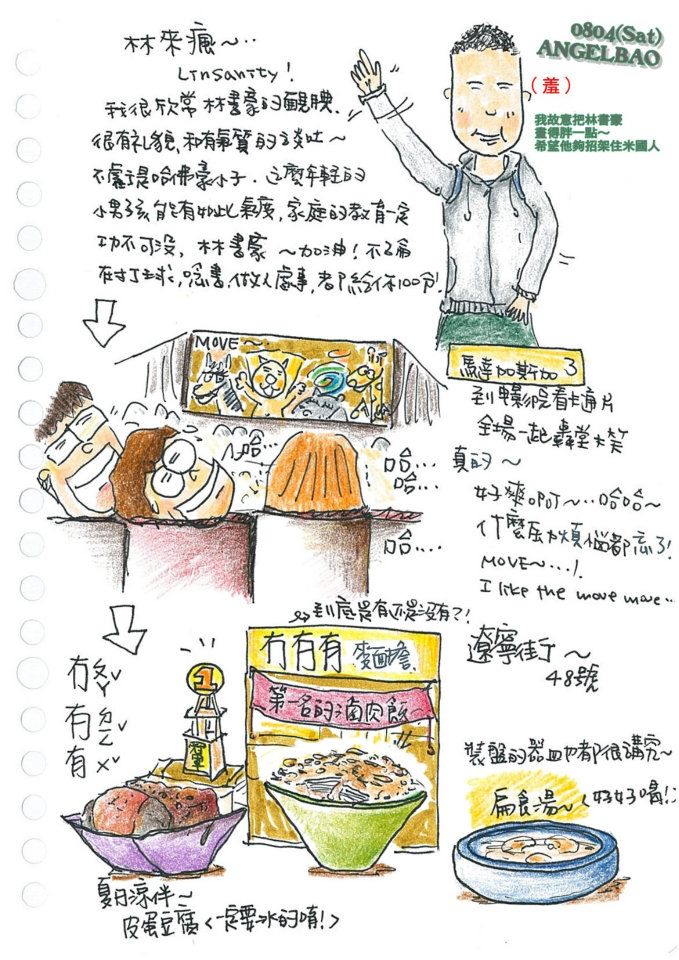 0804(Sat)
ANGELBAO
林來瘋~‥
Linsanity!
(羞)
我故意把林書豪
畫得胖一點~
希望他夠招架住米國人
我很欣常林書豪的靦腆、
很有礼貌、和有氣質的談吐~
不虧是哈佛豪小子．這麼年輕的
小男孩能有如此氣度，家庭的教育一定
功不可没，林書豪~加油!不論
在打球，唸書，做人處事，都給你100分!
MOVE~
馬達加斯加3
到電影院看卡通片
全場一起轟堂大笑
真的~
好爽啊~‥哈哈~
什麼压力煩惱都忘了!
MOVE~...!
I like the move move..
哈...
哈...
哈...
哈....
到底是有还是没有?!
冇有有 麵担
第一名的滷肉飯
冇ㄆㄚˇ
有ㄥˇ
有ㄨˇ
1
遼寧街~
48號
裝盤的器皿也都很講究~
扁食湯~<好好喝!>
夏日涼伴~
皮蛋豆腐<一定要冰的唷!>